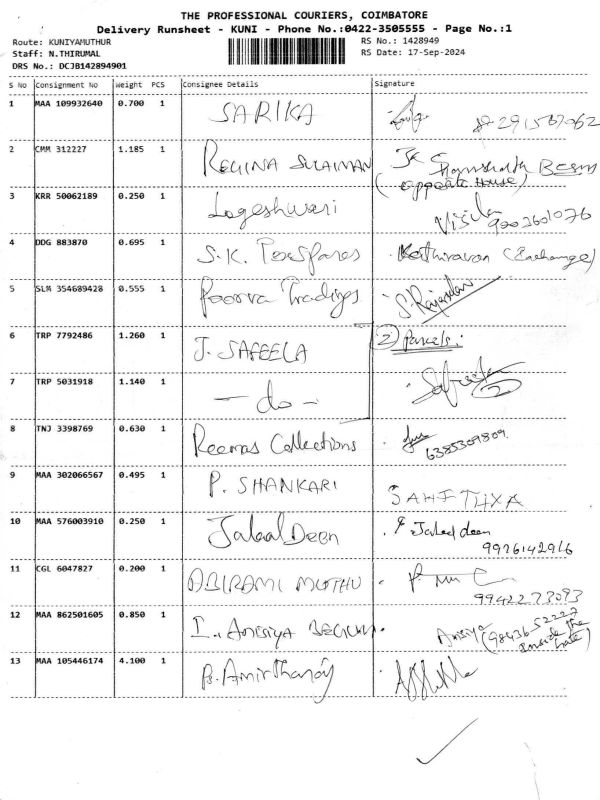 THE PROFESSIONAL COURIERS, COIMBATORE
Delivery Runsheet - KUNI - Phone No.:0422-3505555 - Page No.:1
Route: KUNIYAMUTHUR RS No.: 1428949
Staff: N.THIRUMAL RS Date: 17-Sep-2024
DRS No.: DCJB142894901
S No Consignment No Weight PCS Consignee Details Signature
1 MAA 109932640 0.700 1 SARIKA
2 CMM 312227 1.185 1 REGINA SULAIMAN
(opposite House)
3 KRR 50062189 0.250 1 Logeshwari
9003601076
4 DDG 883870 0.695 1 S.K. Kathiravan (Exchange)
5 SLM 354689428 0.555 1 Poorva Tradings S. Rajendran
6 TRP 7792486 1.260 1 J. SAFEELA 2 Parcels:
7 TRP 5031918 1.140 1 - do - Safeela 2
8 TNJ 3398769 0.630 1 Reemas Collections
6385309809
9 MAA 302066567 0.495 1 P. SHANKARI
10 MAA 576003910 0.250 1 Jalaal Deen
11 CGL 6047827 0.200 1 ABIRAMI MUTHU
9942273093
12 MAA 862501605 0.850 1 I. ANSIYA BEGUM. Ansiya (9843652227
Inside the
Gate)
13 MAA 105446174 4.100 1